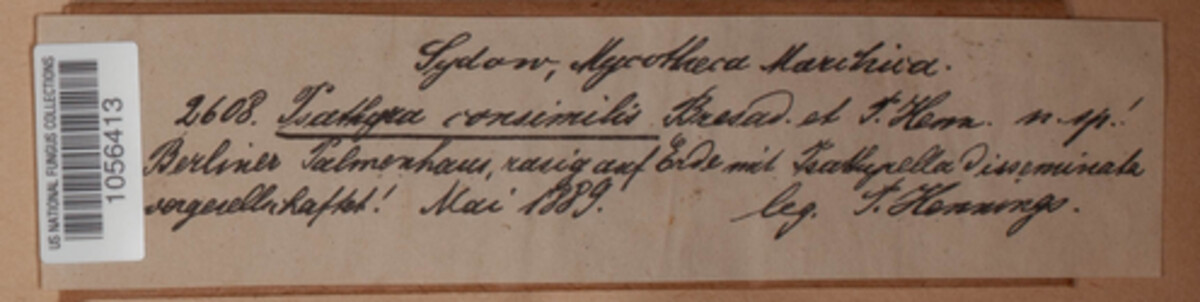 Sydow, Mycotheca Marchica.
2608. Psathyra consimilis Bresad. et P. Henn. n. sp.!
Berliner Palmenhaus, rasig auf Erde mit Psathyrella disseminata
vergesellschaftet! Mai 1889. leg. P. Hennings.
US NATIONAL FUNGUS COLLECTIONS
1056413